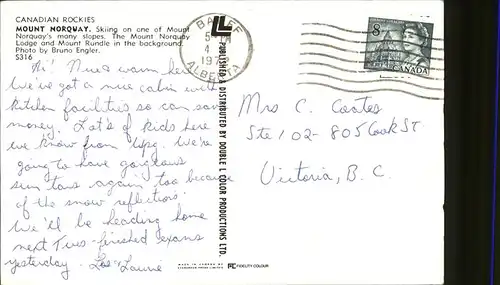 CANADIAN ROCKIES
MOUNT NORQUAY. Skiing on one of Mount
Norquay's many slopes. The Mount Norquay
Lodge and Mount Rundle in the background.
Photo by Bruno Engler.
S316
Hi! Nice warm here
We've got a nice cabin with
kitchen facilities so can save
money. Lot's of kids here
we know from Wpg. We're
going to have gorgeous
sun tans again too because
of the snow reflection.
We'll be heading home
next Tues - finished exams
yesterday. Love Laurie
LL
PUBLISHED & DISTRIBUTED BY DOUBLE L COLOR PRODUCTIONS LTD.
BANFF
ALBERTA
8
CANADA
Mrs C. Coates
Ste 102 - 805 Cook ST
Victoria, B. C.
MADE IN CANADA BY
FC FIDELITY COLOUR